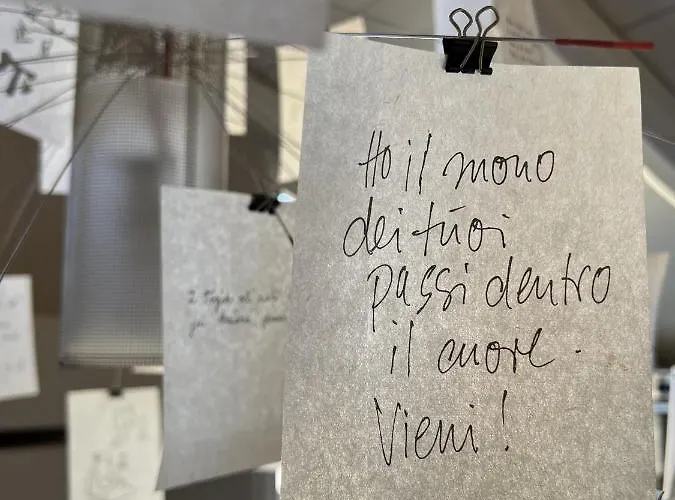 Ho il mono
dei tuoi
passi dentro
il cuore.
Vieni!